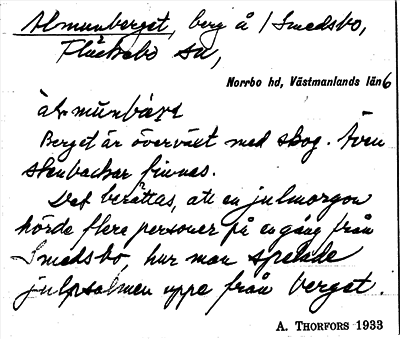 Almunberget, berg å Smedsbo,
Fläckebo sn,
Norrbo hd, Västmanlands län 6
Berget är överväxt med skog. Även
stenbackar finnas.
Det berättas, att en julmorgon
hörde flere personer på en gång från
Smedsbo, hur man spelade
julpsalmen uppe från berget.
A. THORFORS 1933